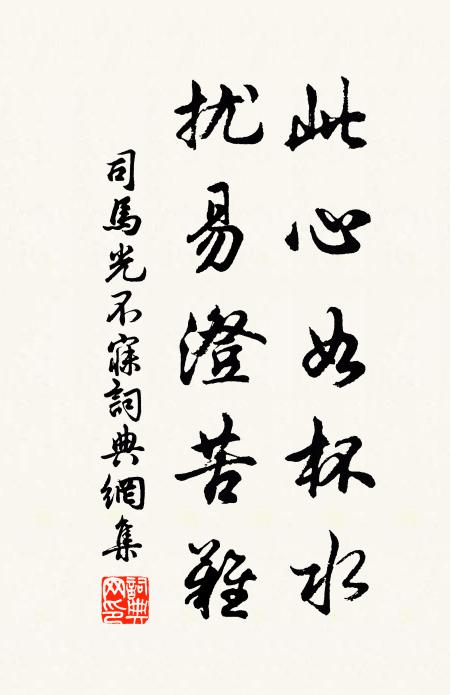 此心如杯水
扰易澄苦難
司馬光不寐詞典網集
詞典网印